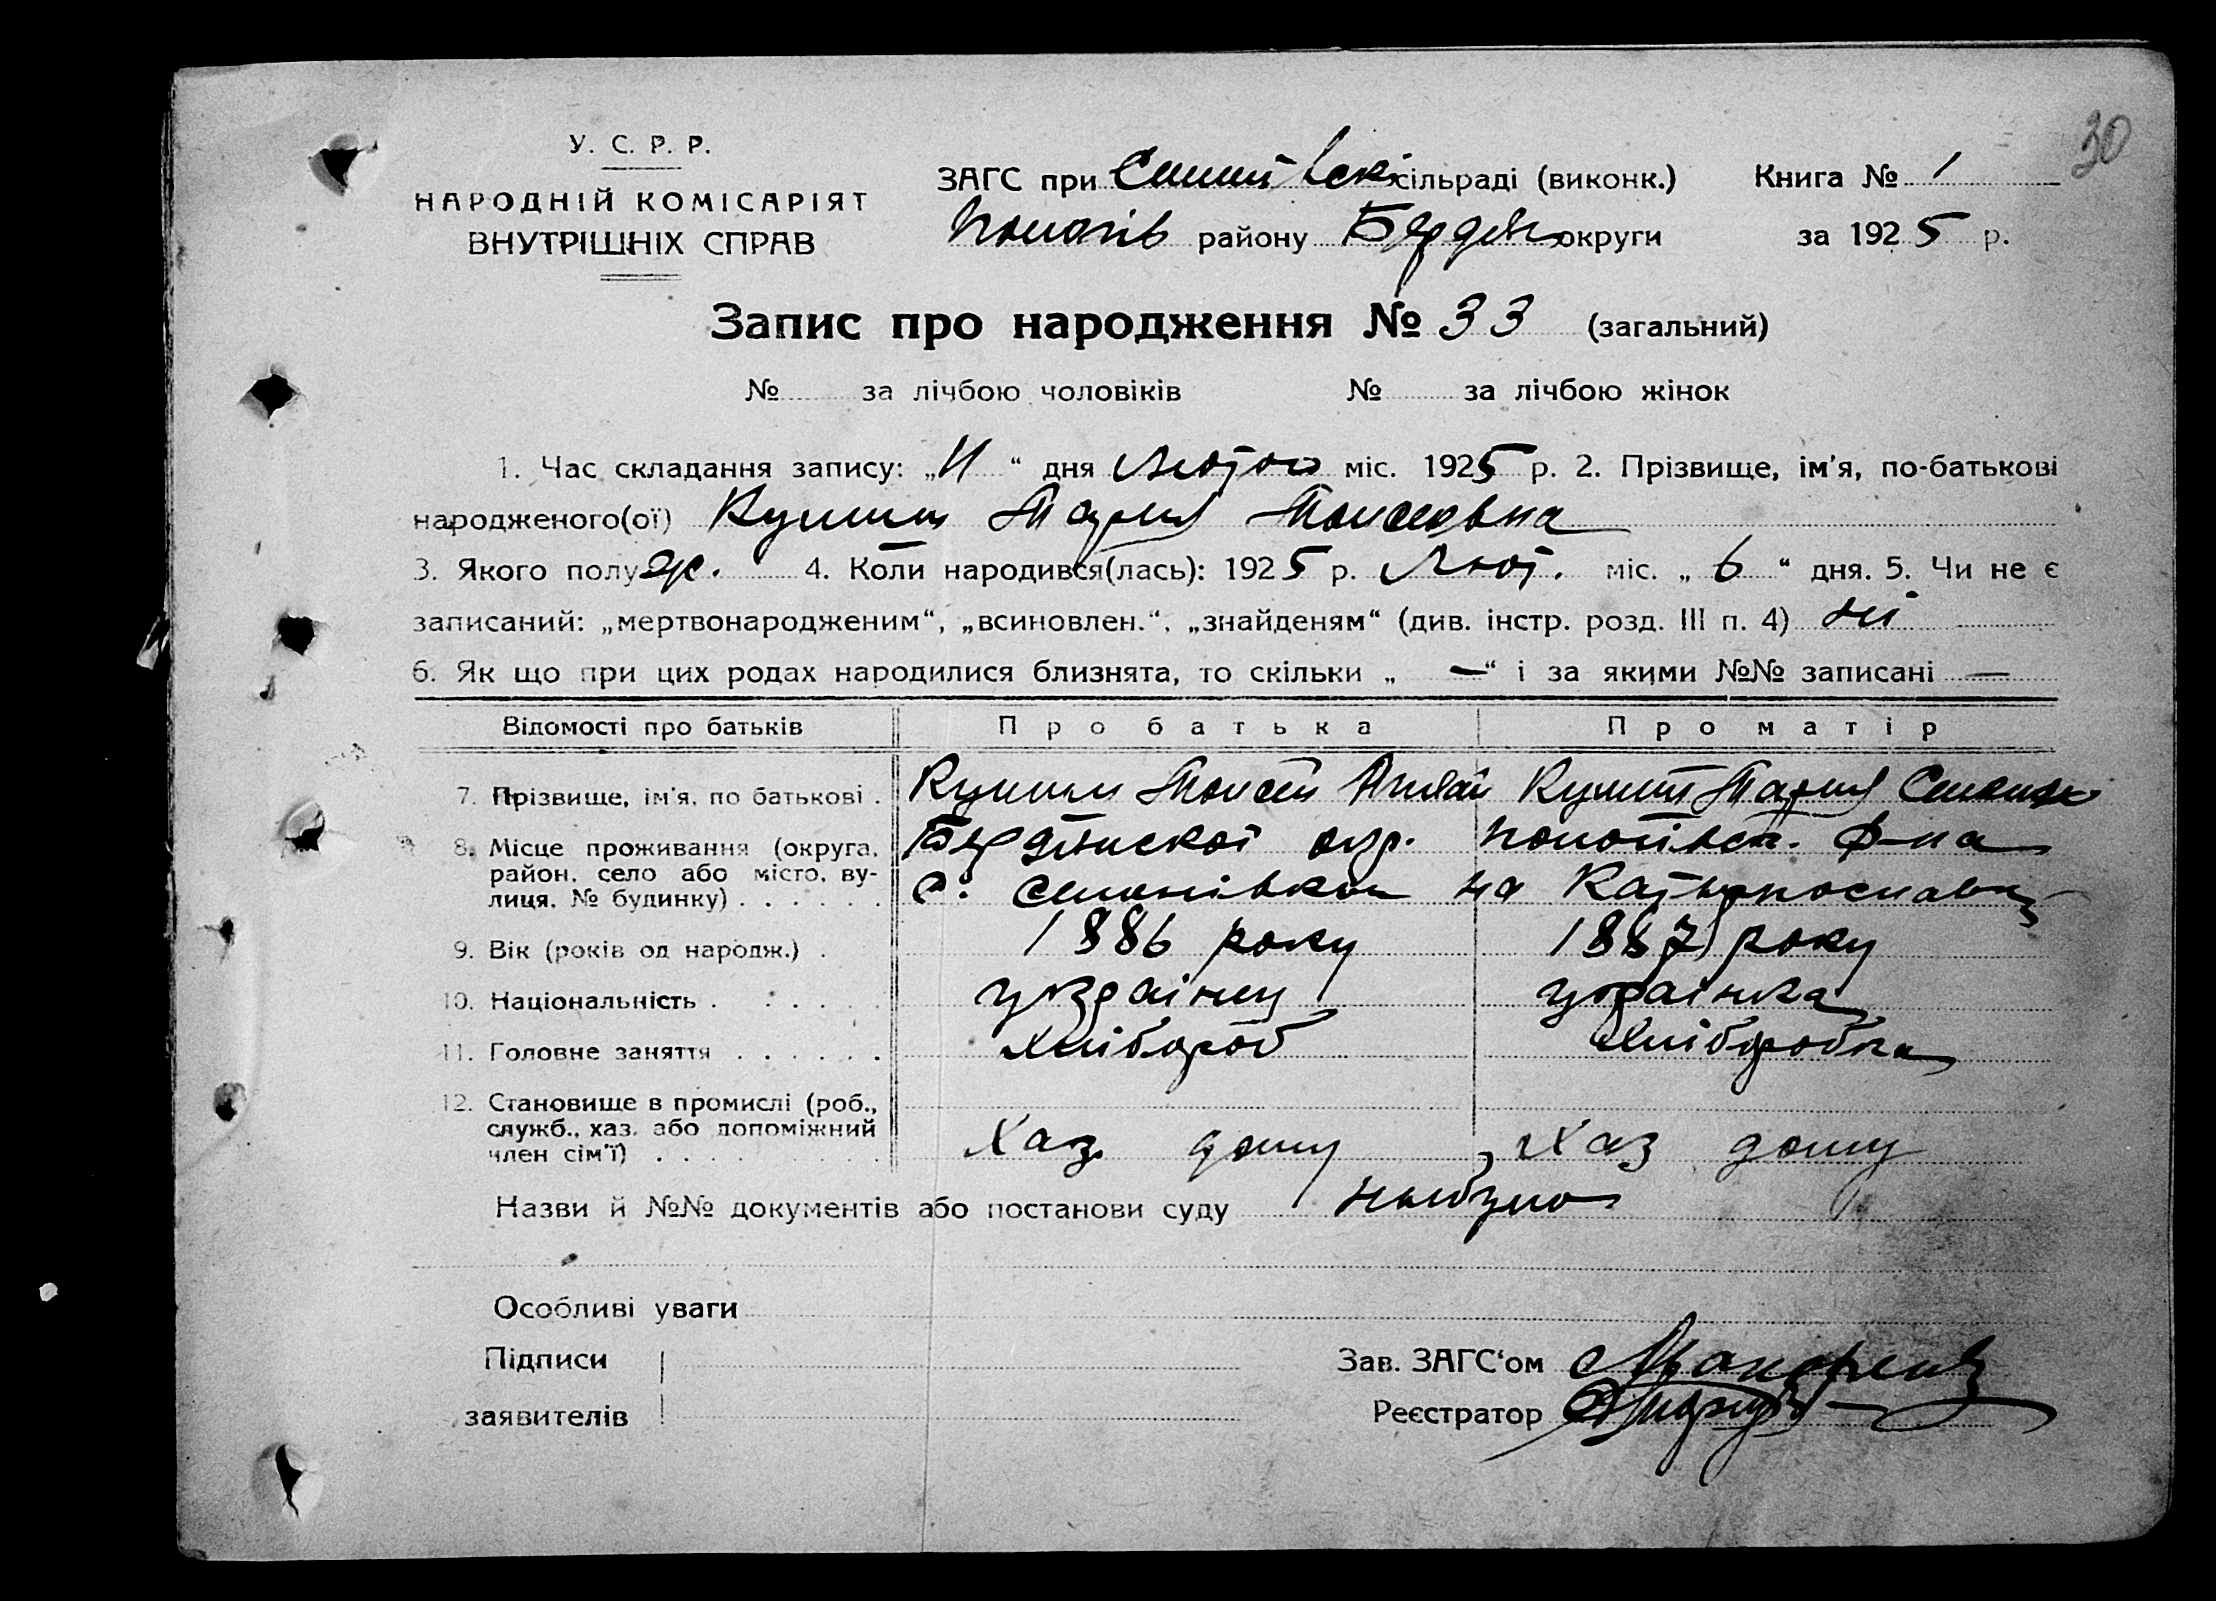 30
У. С. Р. Р.
НАРОДНІЙ КОМІСАРІЯТ
ВНУТРІШНІХ СПРАВ
ЗАГС при сільраді (виконк.) Книга № 1
району Бердян округи за 1925 р.
Запис про народження № 33 (загальний)
№ за лічбою чоловіків № за лічбою жінок
1. Час складання запису: „11“ дня Лютого міс. 1925 р. 2. Прізвище, ім'я, по-батькові
народженого(ої) Мария Моисеевна
3. Якого полу ж. 4. Коли народився(лась): 1925 р. Лют. міс. „6“ дня. 5. Чи не є
записаний: „мертвонародженим“, „всиновлен.“, „знайденям“ (див. інстр. розд. III п. 4) ні
6. Як що при цих родах народилися близнята, то скільки „—“ і за якими №№ записані —
Відомості про батьків Про батька Про матір
7. Прізвище, ім'я, по батькові . Моисей Мария
8. Місце проживання (округа, Бердянскої окр. р-на
район, село або місто, ву-
лиця, № будинку) . . . . . . с. на
9. Вік (років од народж.) . 1886 року 1887 року
10. Національність . . . . . українец українка
11. Головне заняття . . . . . . хлібороб хліборобка
12. Становище в промислі (роб.,
служб., хаз. або допоміжний
член сім'ї) . . . . . . . . . Хаз. дому Хаз дому
Назви й №№ документів або постанови суду небуло
Особливі уваги
Підписи Зав. ЗАГС'ом
заявителів Реєстратор